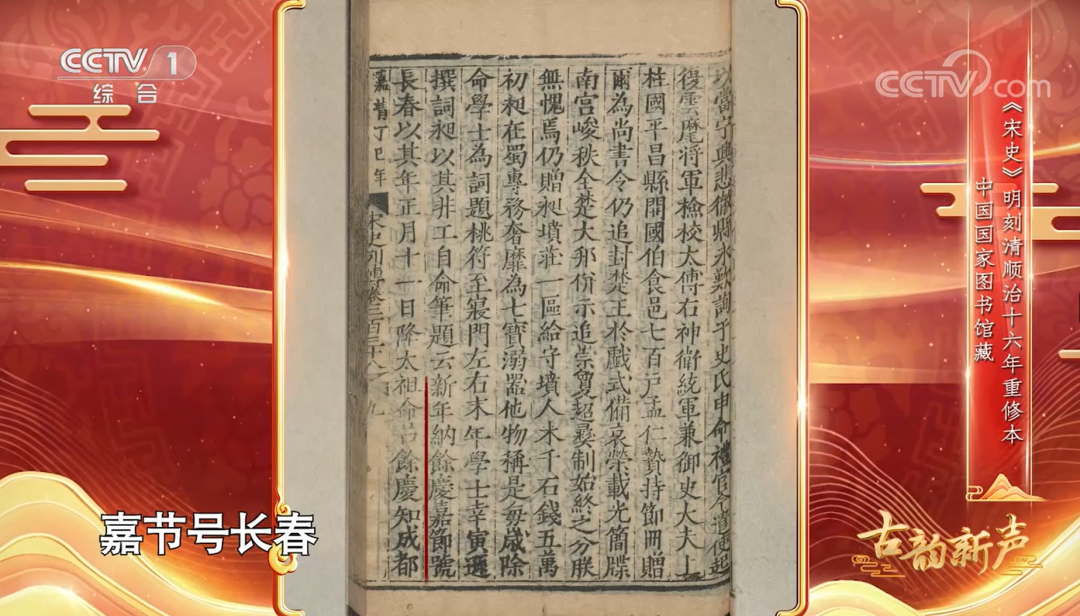 CCTV 1
综合
CCTV.com
《宋史》明刻清顺治十六年重修本
中国国家图书馆藏
當宁興悲徽縣永歎詢于史氏申命禮官今遣使起
復雲麾將軍檢校太傅右神衛統軍兼御史大夫上
柱國平昌縣開國伯食邑七百戶孟仁贄持節冊贈
爾為尚書令仍追封楚王於戲式備哀榮載光簡牒
南宮峻秩全楚大邦併示追崇敻超彞制始終之分朕
無愧焉仍贈昶墳莊一區給守墳人米千石錢五萬
初昶在蜀專務奢靡為七寶溺器他物稱是每歲除
命學士為詞題桃符至寢門左右末年學士幸寅遜
撰詞昶以其非工自命筆題云新年納餘慶嘉節號
長春以其年正月十一日降太祖命呂餘慶知成都
嘉靖丁巳年
宋史列傳卷二百三十八 九
嘉节号长春
古韵新声